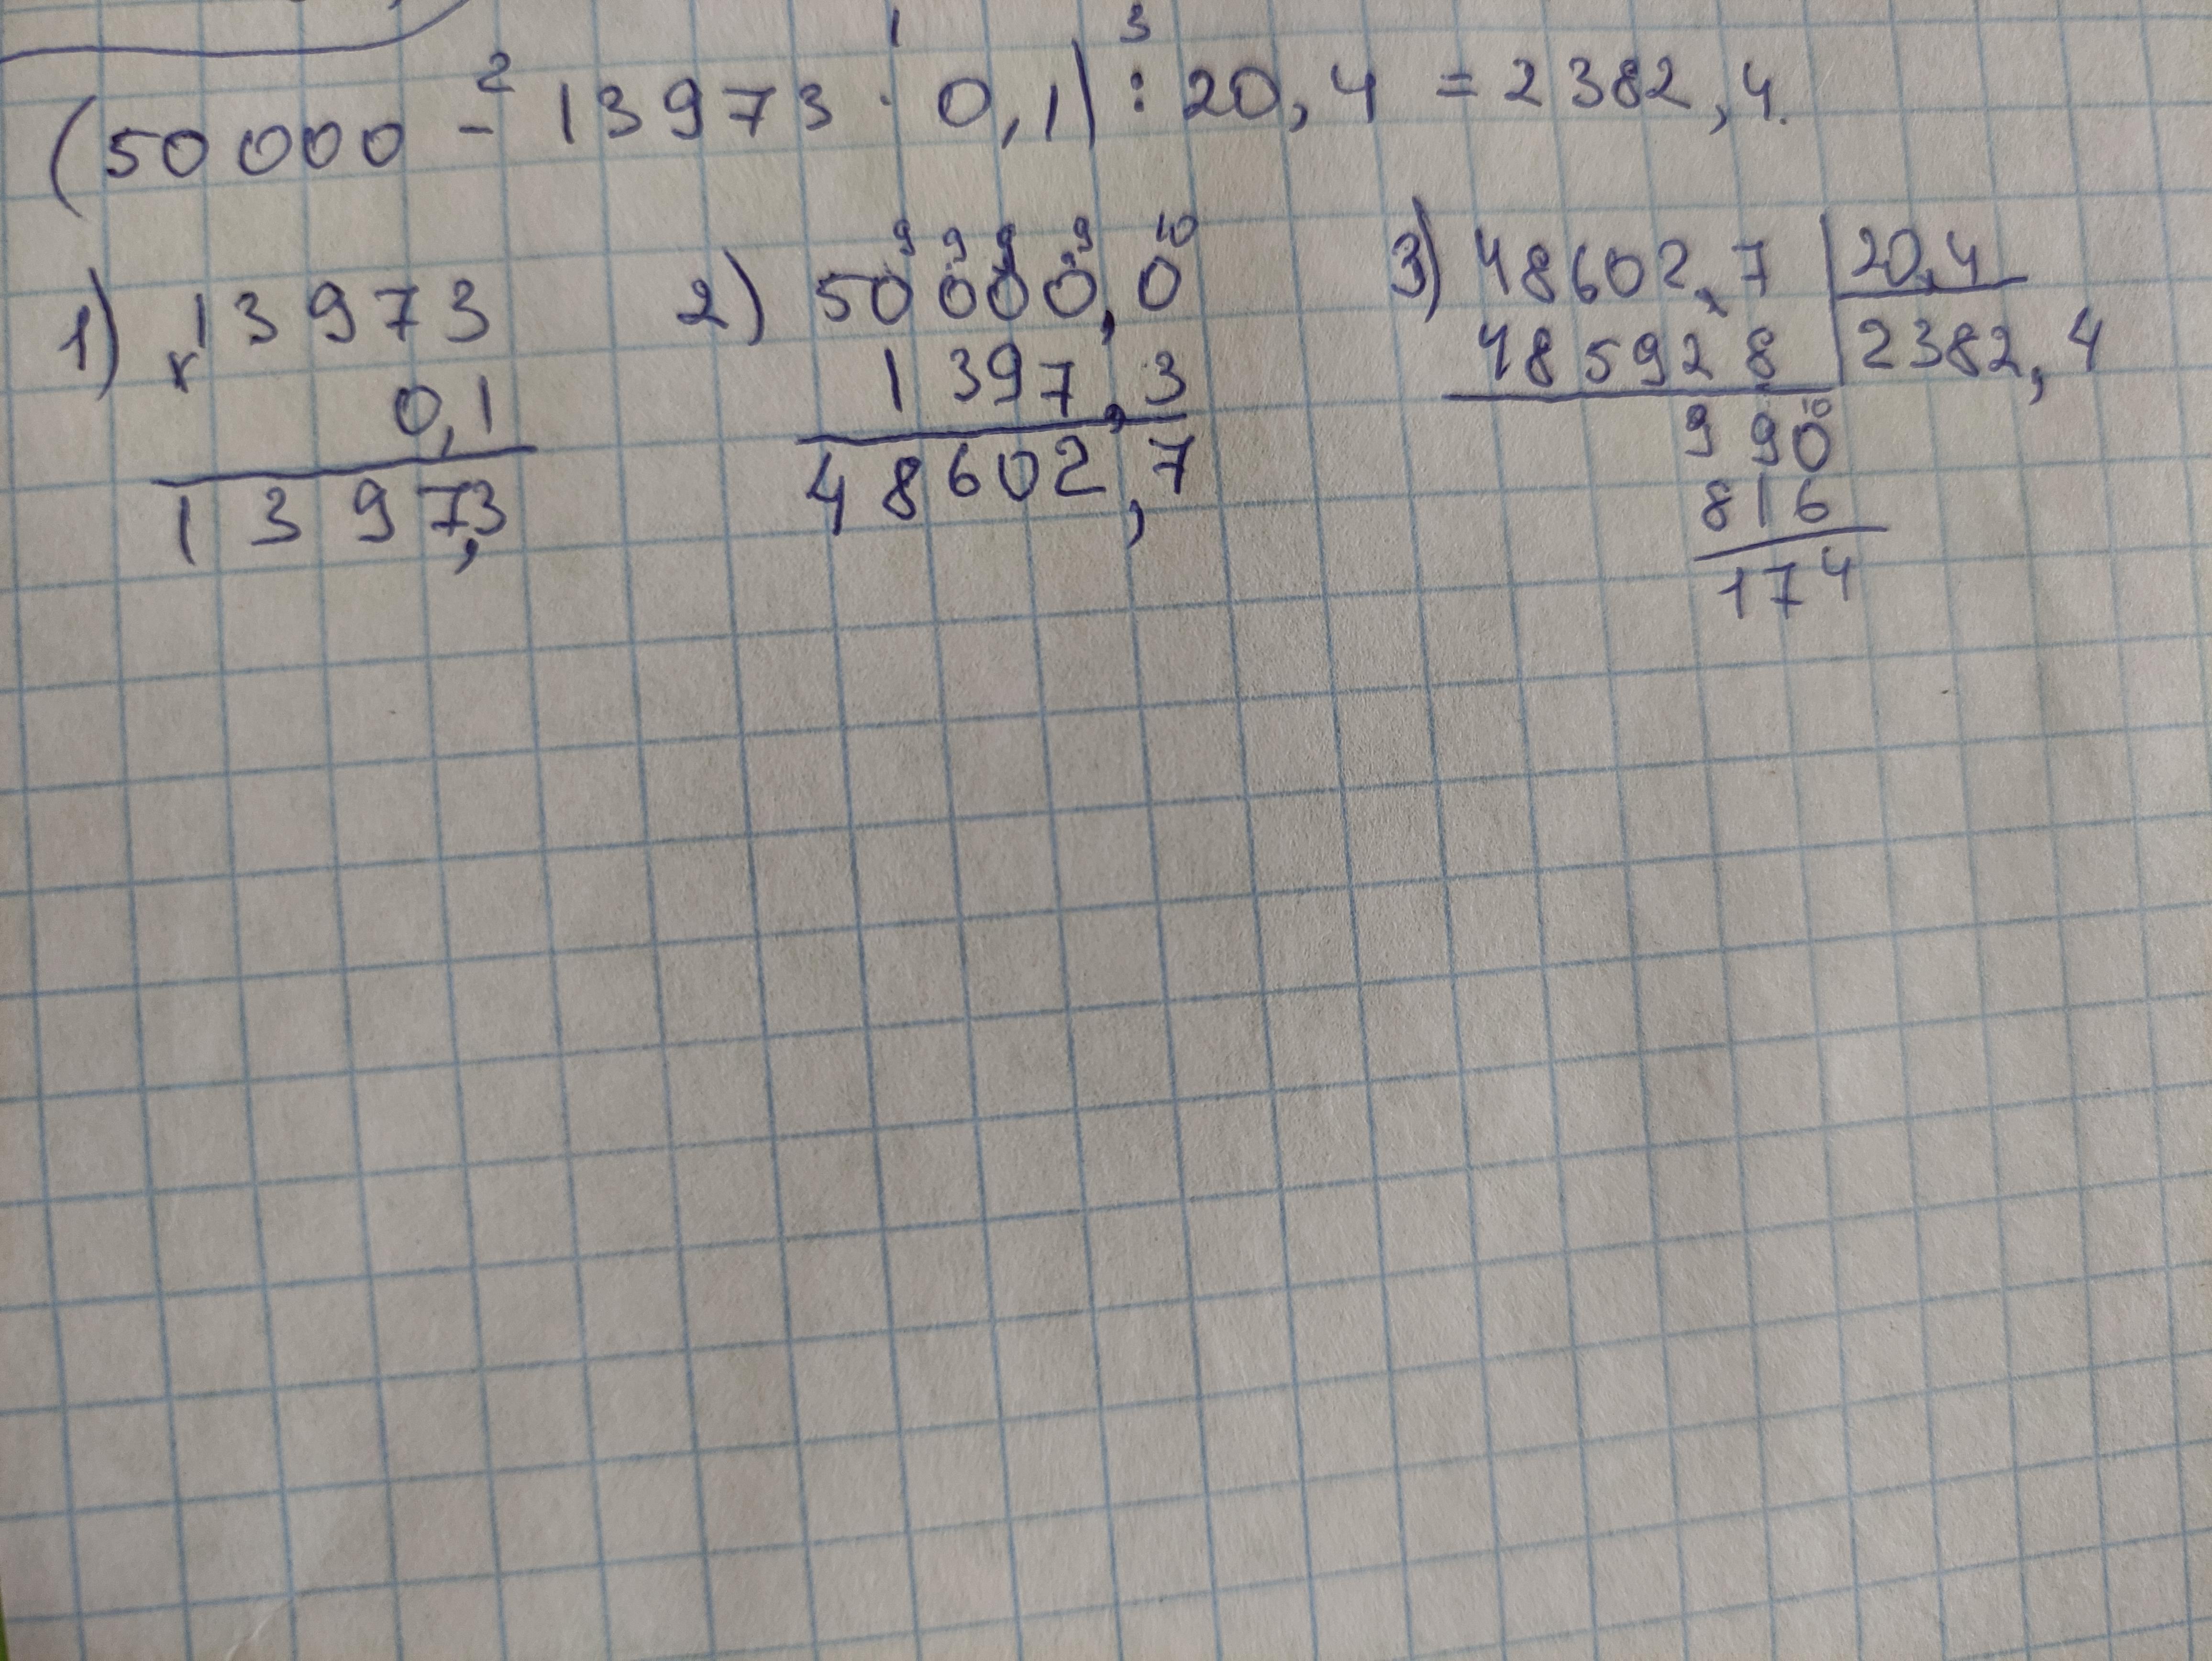 1 3
2
(50000 - 13973 · 0,1) : 20,4 = 2382,4.
1) 13973
x
0,1
1397,3
2) 50000,0
9 9 9 9 10
1397,3
48602,7
3) 48602,7 | 20,4
485928 | 2382,4
10
990
816
174